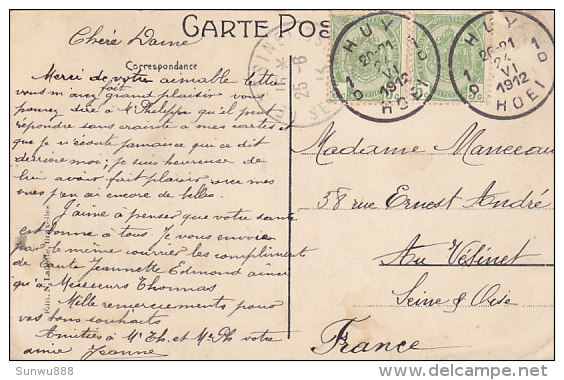 CARTE POS
Chère Dame
Correspondance
Merci de votre aimable lettre
vous m'avez fait grand plaisir vous
pouvez dire à Mr Philippe qu'il peut
répondre sans crainte à mes cartes et
que je n'écoute jamais ce que dit
derrière moi; je suis heureuse de
lui avoir fait plaisir avec mes
vues j'en ai encore de belles.
J'aime à penser que votre santé
est bonne à tous Je vous envoie
par le même courrier les compliments
de Jeannette Edmond ainsi
qu'à Messieurs Thommas
Mille remerciements pour
vos bons souhaits
Amitiés à Mr Th. et Mr Ph votre
amie Jeanne
HUY
20-21
24
VI
1912
HOEI
HUY
20-21
24
VI
1912
HOEI
25-6
Madame Manceau
58 rue Ernest André
Au Vésinet
Seine & Oise
France
Sunwu888
delcampe.net